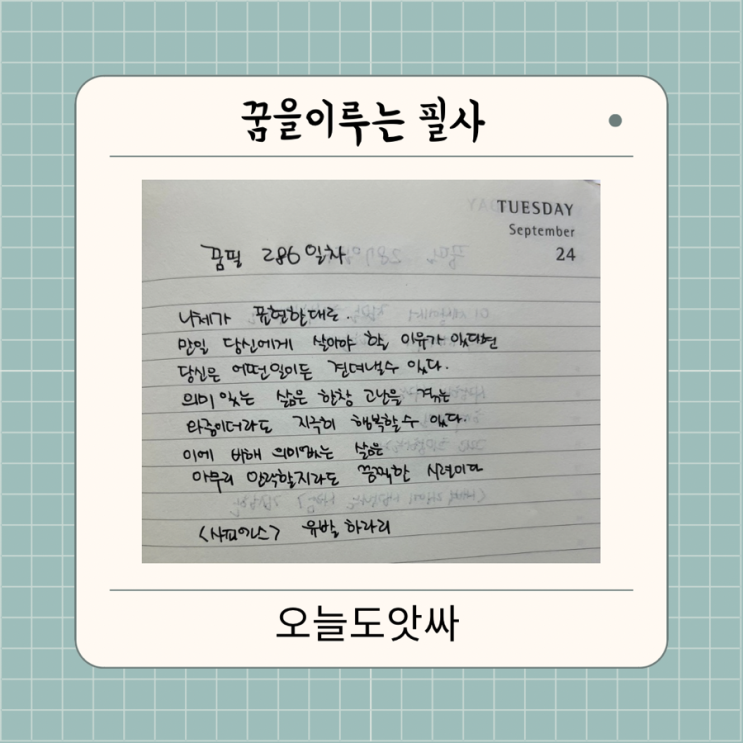 꿈을이루는 필사
TUESDAY
September
24
꿈필 286일차
니체가 표현한대로.
만일 당신에게 살아야 할 이유가 있다면
당신은 어떤일이든 견뎌낼수 있다.
의미 있는 삶은 한창 고난을 겪는
와중이더라도 지극히 행복할수 있다.
이에 비해 의미없는 삶은
아무리 안락할지라도 끔찍한 시련이다
<사피엔스> 유발 하라리
오늘도앗싸